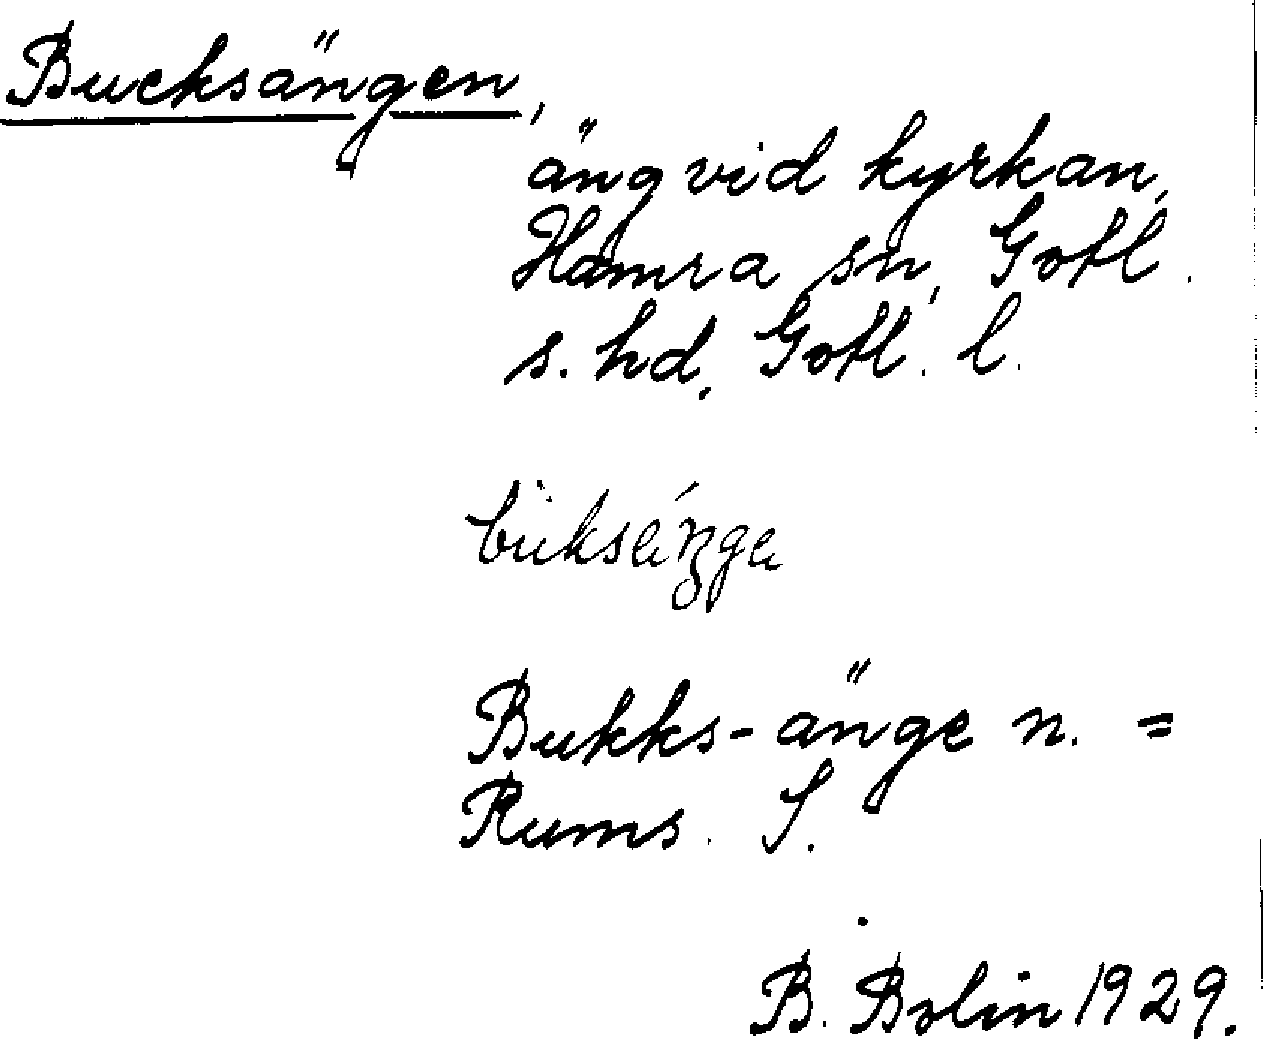 Bucksängen,
äng vid kyrkan,
Hamra sn, Gotl.
s. hd, Gotl. l.
Bukks-änge n. =
Rums. S.
B. Bolin 1929.